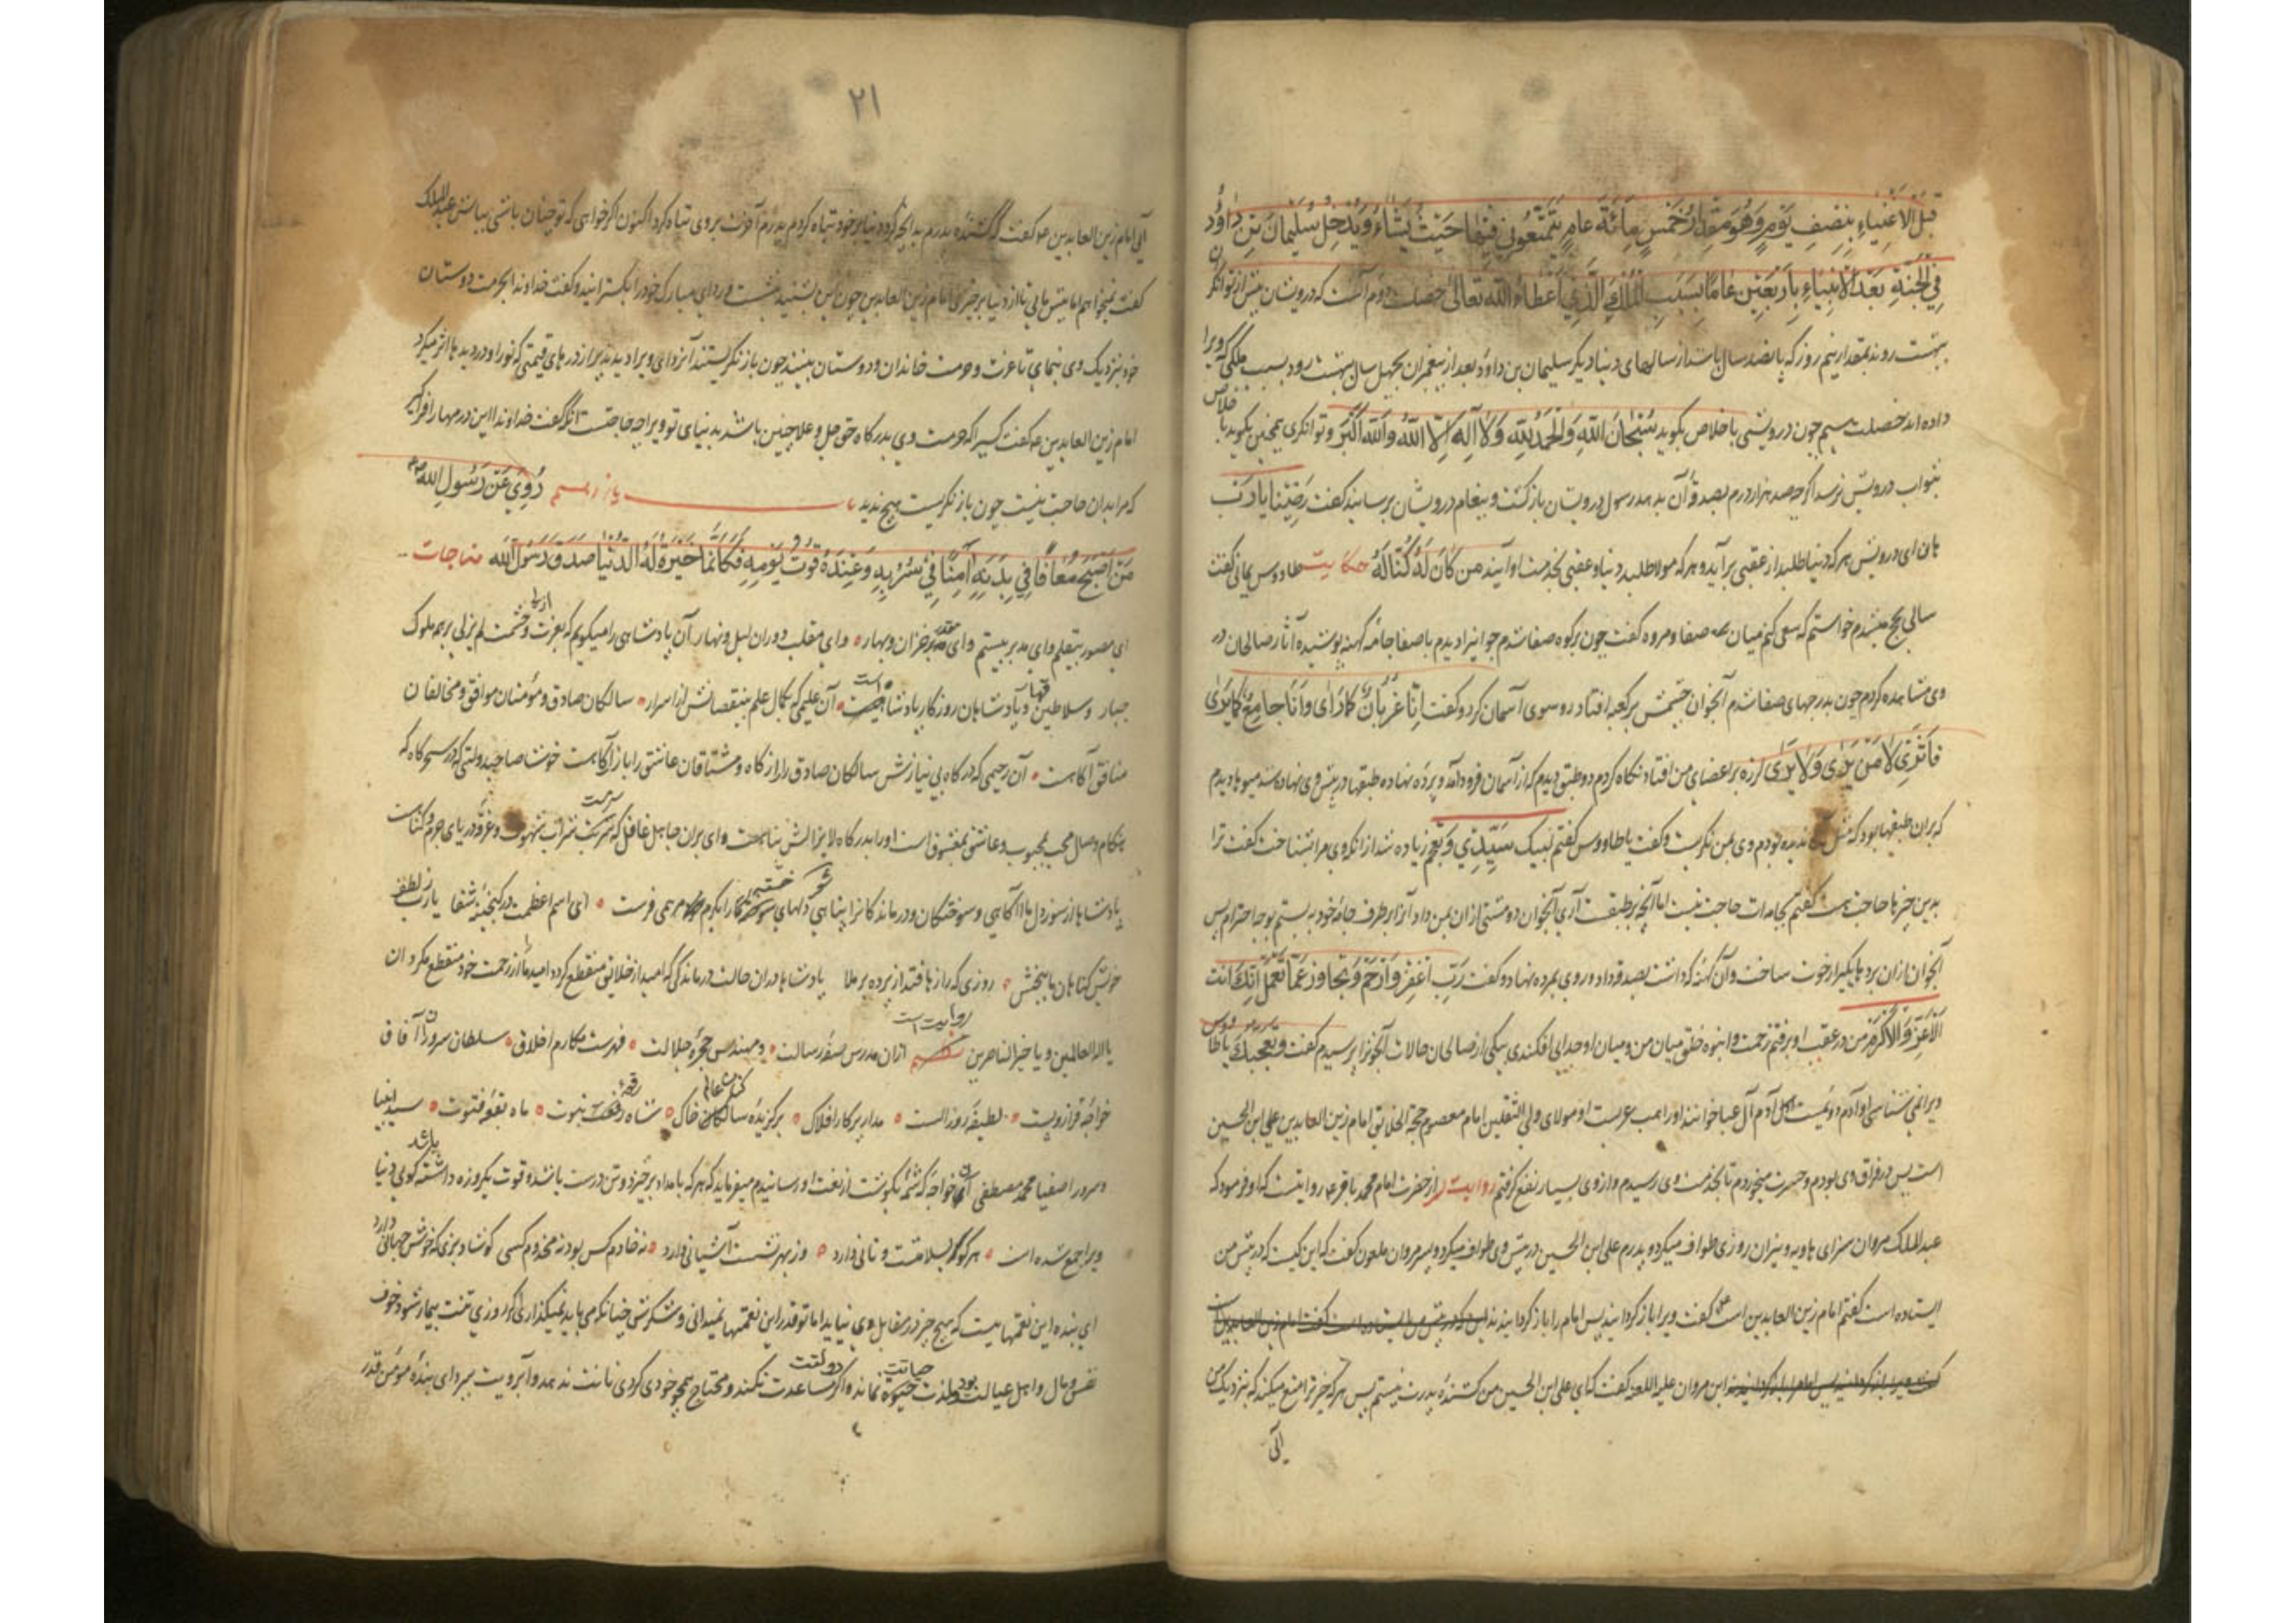 قَبْلَ الْاَغْنِیَاءِ بِنِصْفِ یَوْمٍ وَهُوَ مِقْدَارُ خَمْسِ مِائَةِ عَامٍ یَتَمَتَّعُونَ فِیْهَا حَیْثُ یَشَاءُ وَیَدْخُلُ سُلَیْمَانُ بْنُ دَاوُدَ
فِی الْجَنَّةِ بَعْدَ الْاَنْبِیَاءِ بِاَرْبَعِیْنَ عَامًا بِسَبَبِ الْمُلْکِ الَّذِی اَعْطَاهُ اللّٰهُ تَعَالٰی خصلت دوم آنست که درویشان پیش از توانگران
ببهشت روند بمقدار نیم روز که پانصد سال باشد از سالهای دنیا و دیگر سلیمان بن داود بعد از پیغمبران بچهل سال ببهشت رود بسبب ملکی که ویرا
داده اند خصلت سیم چون درویشی باخلاص بگوید سُبْحَانَ اللّٰهِ وَالْحَمْدُ لِلّٰهِ وَلَا اِلٰهَ اِلَّا اللّٰهُ وَاللّٰهُ اَکْبَرُ و توانگری همچنین بگوید با خلاص
بثواب درویش نرسد اگر چه صد هزار درم بصدقه آن بدهد رسول درویشان باز گشت و پیغام درویشان برسانید گفت رَضِیْنَا یَا رَبِّ
هان ای درویش هر که دنیا طلبد از عقبی برآید و هر که مولا طلبد دنیا و عقبی بخدمت او آیند من کَانَ لَهُ کُنْتُ لَهُ حکایت طاووس یمانی گفت
سالی بحج میشدم خواستم که سعی کنم میان صفا و مروه گفت چون برکوه صفا شدم جوانیرا دیدم باصفا جامه کهنه پوشیده آثار صالحان در
وی مشاهده کردم چون بدرجهای صفا شدم آنجوان چشمش بر کعبه افتاد رو سوی آسمان کرد و گفت اِنَّا عُرْیَانٌ کَمَا تَرٰی وَاَنَا جَایِعٌ کَمَا تَرٰی
فَمَا تَرٰی لَا مَنْ یَرٰی وَلَا یُرٰی لرزه بر اعضای من افتاد نگاه کردم دو طبق دیدم که از آسمان فرود آمد و برده نهاده طبقها در پیش وی نهاده شد میوها دیدم
که بران طبقها بود که مثل آن ندیده بودم وی بمن نگریست و گفت یا طاووس گفتم لبیک سَیِّدِی و تعجبم زیاده شد از انکه وی مرا بشناخت گفت ترا
بدین چیزها حاجت هست گفتم بجامه ات حاجت نیست اما آنچه بر طبقست آری آنجوان دو مشتی ازان بمن داد آنرا بر طرف جامه خود به بستم بوجه احترام پس
آنجوان ازان بردها یکی را ازار خویش ساخت وآن کهنه که داشت بصدقه داد و روی بمروه نهاد و گفت رَبِّ اغْفِرْ وَارْحَمْ وَتَجَاوَزْ عَمَّا تَعْلَمُ اِنَّکَ اَنْتَ
الْاَعَزُّ وَالْاَکْرَمُ من در عقب او برفتم زحمت و انبوه خلق میان من و میان او جدایی افکندی بیکی از صالحان حالات آنجوانرا پرسیدم گفت ویعجبک یا طاووس
ویرا نمی شناسی او آدم آل عبا خوانند او راهب عربست او مولای ولی الثقلین امام معصوم حجة الخلایق امام زین العابدین علی ابن الحسین
است پس در فراق وی بودم و حسرت میخوردم تا بخدمت وی رسیدم و از وی بسیار نفع گرفتم روایت از حضرت امام محمد باقر ع روایتست که او فرمود که
عبد الملک مروان سزای هاویه و نیران روزی طواف میکرد و پدرم علی ابن الحسین در پیش وی طواف میکرد و پسر مروان ملعون گفت که این کیست که در پیش من
ایستاده است گفتم امام زین العابدین است گفت ویرا باز گردانید پس امام را باز گردانیدند
ابن مروان علیه اللعنه گفت که ای علی ابن الحسین من کشندهٔ پدرت نیستم پس هر که چیز ترا منع میکند که نزدیک من
آئی
۲۱
آئی امام زین العابدین ع گفت که کشندهٔ پدرم بدانچه کرد دنیا بر خود تباه کردم پدرم آخرت بر وی تباه کرد اکنون اگر خواهی که تو چنان باشی بباش عبد الملک
گفت نمیخواهم اما پیش ما بیا تا از دنیا بر چیزی امام زین العابدین چون این بشنید بنشست و ردای مبارک خود را بگسترانید و گفت خداوندا بحرمت دوستان
خود نزدیک وی بنمای تا عزت و حرمت خاندان و دوستان ببیند چون باز نگریستند آنردای ویرا دیدند پر از درهای قیمتی که نور او در دیدها اثر میکرد
امام زین العابدین ع گفت کسیرا که حرمت وی بدرگاه حق جل وعلا چنین باشد بدنیای تو ویرا چه حاجت آنگه گفت خداوندا این درمها را فراگیر
که مرا بدان حاجت نیست چون باز نگریست هیچ ندید رُوِیَ عَنْ رَسُولِ اللّٰهِ
مَنْ اَصْبَحَ مُعَافًا فِی بَدَنِهِ آمِنًا فِی سُرْبِهِ وَعِنْدَهُ قُوْتُ یَوْمِهِ فَکَاَنَّمَا خُیِّرَتْ لَهُ الدُّنْیَا صَدَقَ رَسُولُ اللّٰه مناجات
ای مصور بیقلم و ای مدبر بیستم و ای مقدر خزان و بهار و ای مقلب دوران لیل و نهار آن پادشاهی را میگویم که بعزت و حشمت لم یزلی بر همه ملوک
جبار و سلاطین قهار و پادشاهان روزگار پادشاه است آن علیمی که بکمال علم بینقصانش از اسرار سالکان صادق و مؤمنان موافق و مخالفان
منافق آگاهست آن رحیمی که درگاه بی نیازش سالکان صادق را رازگاه و مشتاقان عاشق را بازآگاهست خوشا صاحبدولتی که در سحرگاه که
هنگام وصال محب بمحبوب و عاشق بمعشوق است او را بدرگاه لایزالش پناهست وای بران جاهل غافل که سرمست شراب شهوت و غرق دریای جرم و گناهست
پادشاها از سوز دل ما آگاهی و سوختگان و درماندگانرا پناهی دلهای سوختگانرا بکرم مرهمی فرست ای اسم اعظمت در گنجینهٔ شفا یا رب ز لطف
خویش گناهان ما ببخش روزی که رازها فتد از پرده بر ملا پادشاها دران حالت درماندگی که امید از خلایق منقطع گردد امید ما از رحمت خود منقطع مگردان
یا اله العالمین و یا خیر الناصرین روایت است ازان مدرس صفهٔ رسالت و مهندس حجرهٔ جلالت فهرست مکارم اخلاق سلطان سروران آفاق
خواجهٔ قراروپست لطیفهٔ روز الست مدار پرکار افلاک برگزیدهٔ سالکان خاک شاه رقعهٔ نبوت ماه بقعهٔ فتوت سید انبیا
و سرور اصفیا محمد مصطفی آن خواجه که شمهٔ بگوشت از نعت او رسانیدم میفرماید که هر که بامداد برخیزد و تن درست باشد و قوت یکروزه داشته باشد گویی دنیا
ویرا جمع شده است هر کو بسلامتست و نانی دارد وز بهر نشست آشیانی دارد نه خادم کس بود نه مخدوم کسی گو شاد بزی که خوش جهانی دارد
ای بنده این نعمتهاییست که هیچ چیز در مقابل وی نیاید اما تو قدر این نعمتها نمیدانی و شکرش چنانکه می باید نمیگذاری اگر روزی تنت بیمار شود و خوف
نفس و مال و اهل و عیالت بود لذت حیاتت نماند و اگر دولتت مساعدت نکند و محتاج همچو خودی گردی نانت ندهد و آبرویت ببرد ای بندهٔ مؤمن قدر